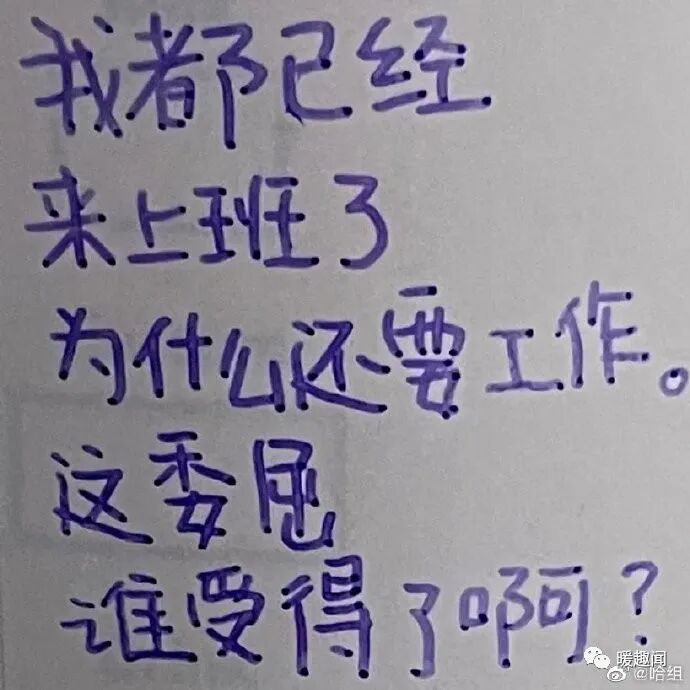 我都已经
来上班了
为什么还要工作。
这委屈
谁受得了啊?
暖趣闻
@哈组